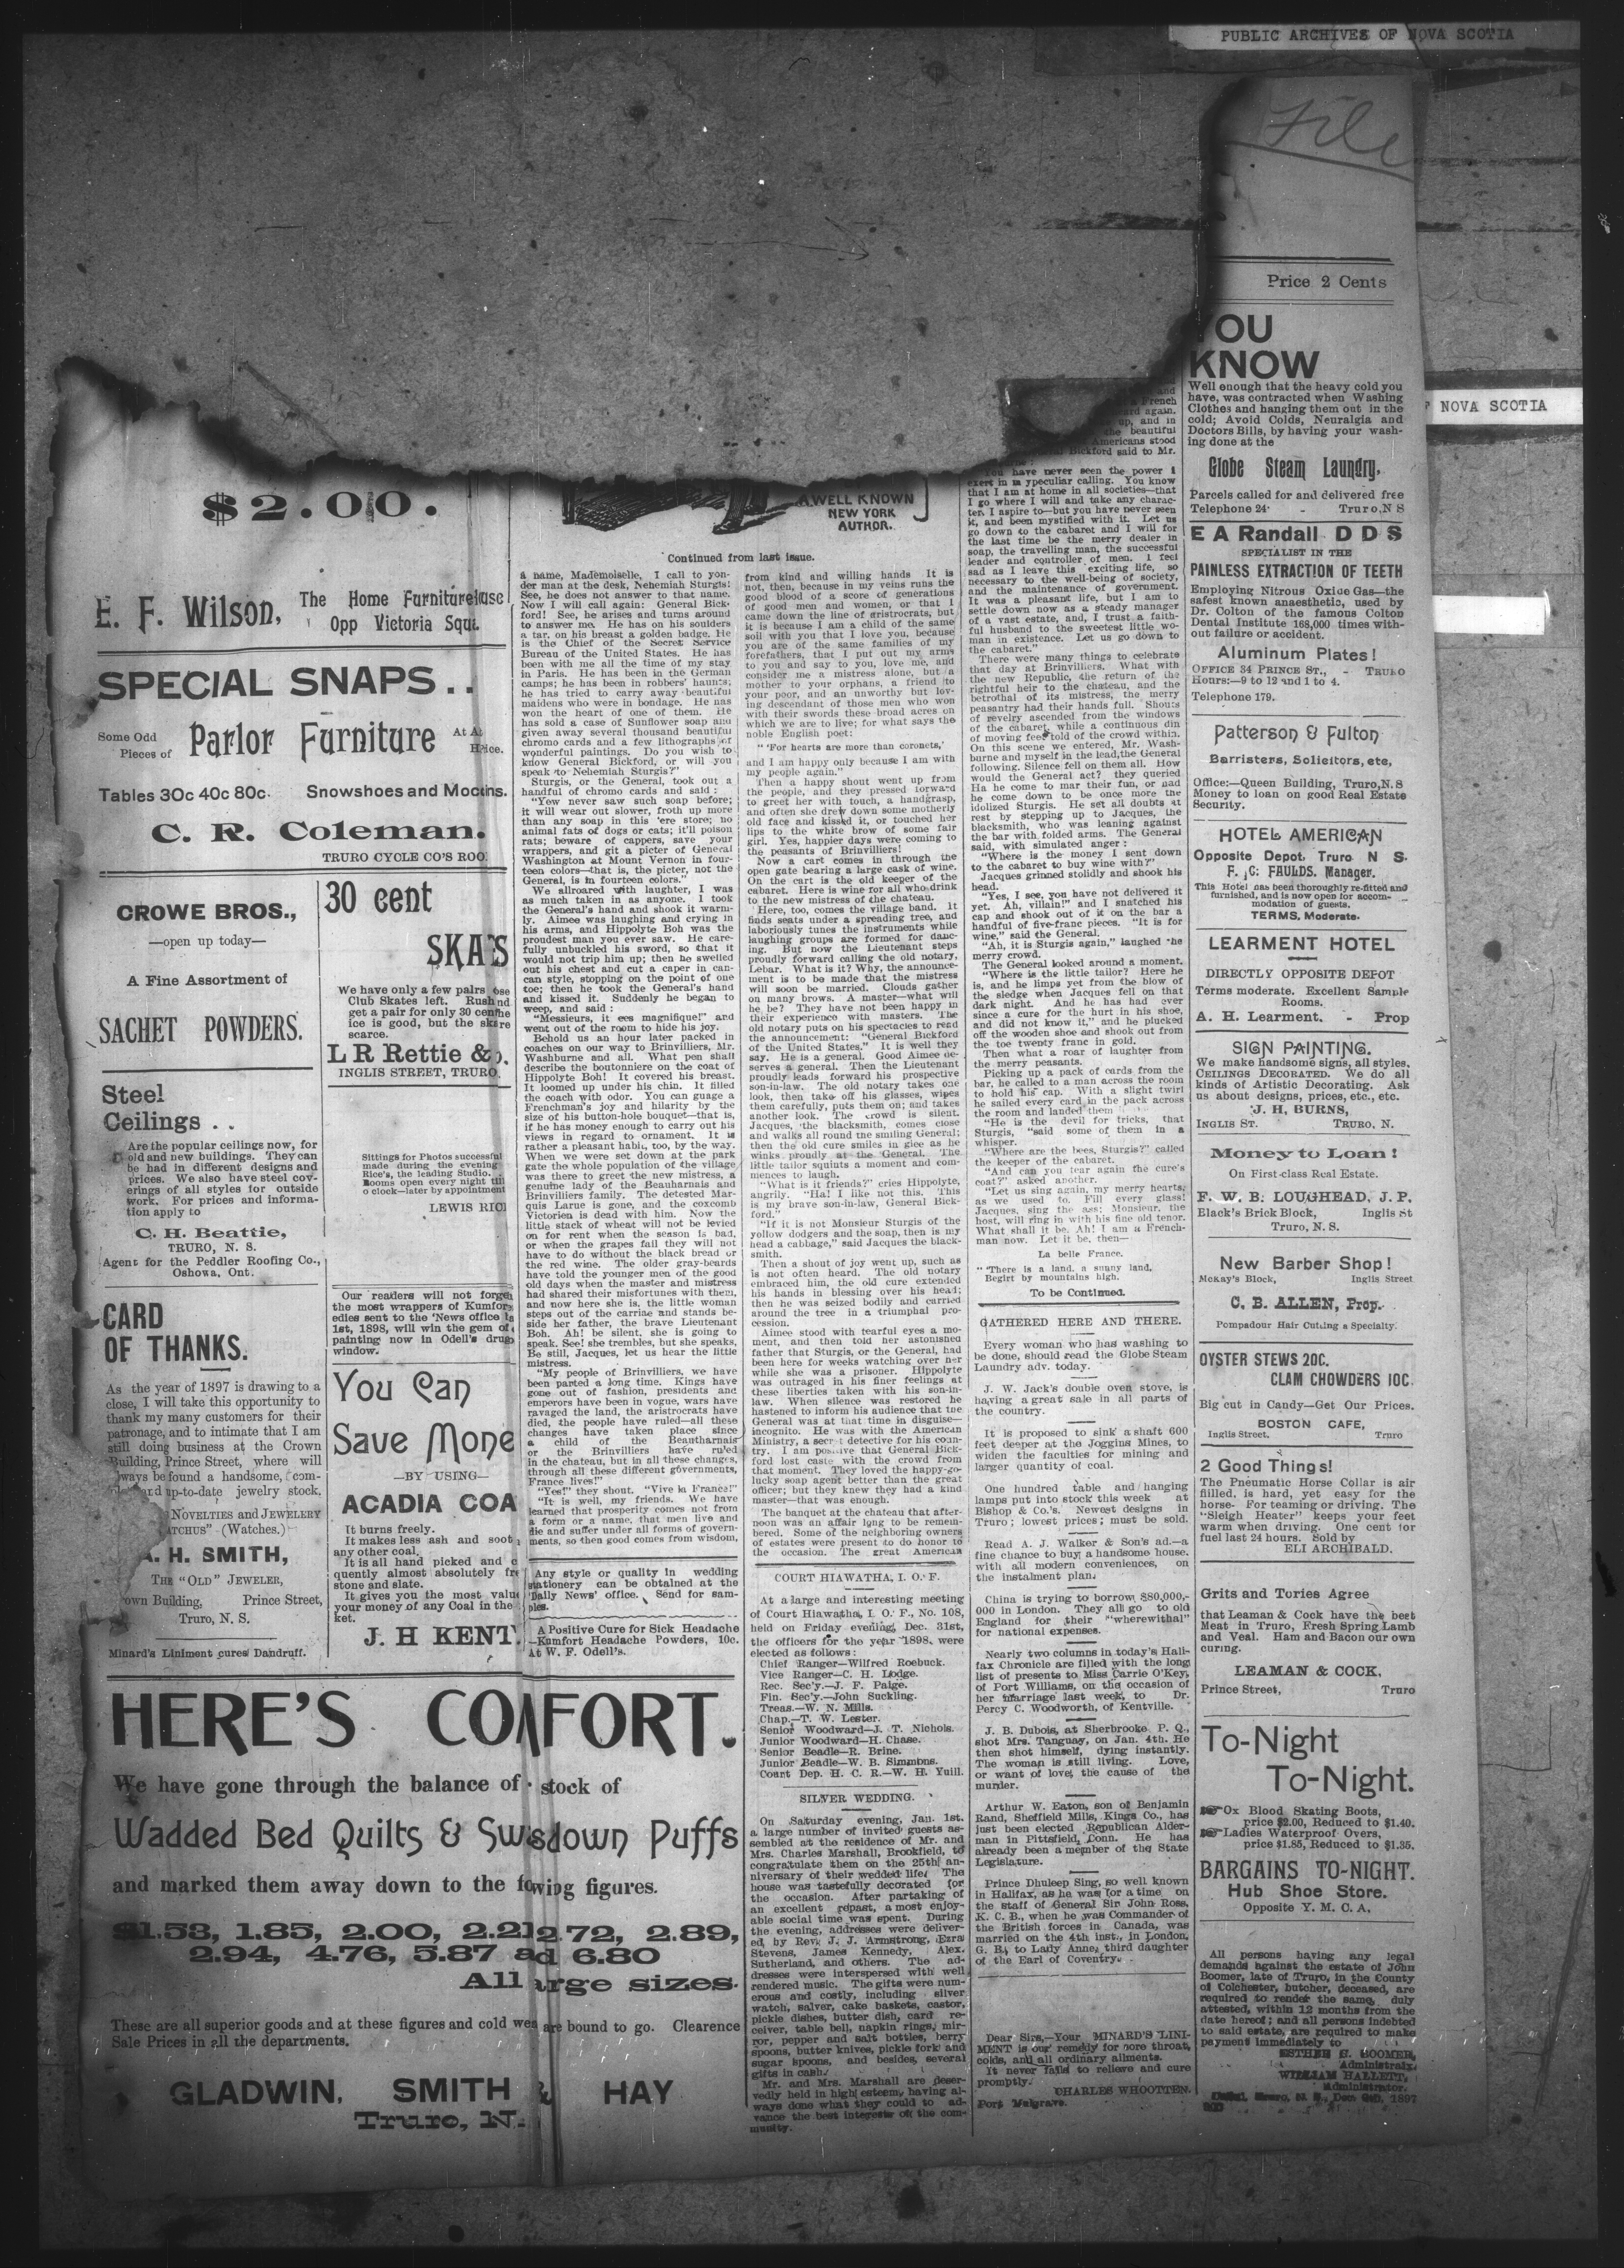 PUBLIC ARCHIVES OF NOVA SCOTIA
File
Price 2 Cents
NOVA SCOTIA
$2.00.
E. F. Wilson,
The Home Furniture
Opp Victoria
SPECIAL SNAPS . .
Some Odd
Pieces of
Parlor Furniture
Tables 30c 40c 80c.
Snowshoes and
C. R. Coleman.
TRURO CYCLE CO'S
CROWE BROS.,
—open up today—
A Fine Assortment of
SACHET POWDERS.
30 cent
We have only a few pairs
Club Skates left.
get a pair for only 30
ice is good, but the
scarce.
L R Rettie &
INGLIS STREET, TRURO.
Steel
Ceilings . .
Are the popular ceilings now, for
old and new buildings. They can
be had in different designs and
prices. We also have steel cov-
erings of all styles for outside
work. For prices and informa-
tion apply to
C. H. Beattie,
TRURO, N. S.
Agent for the Peddler Roofing Co.,
Oshowa, Ont.
Sittings for Photos successful
made during the evening
Rice's, the leading Studio.
Rooms open every night
o clock—later by appointment
LEWIS
CARD
OF THANKS.
As the year of 1897 is drawing to a
close, I will take this opportunity to
thank my many customers for their
patronage, and to intimate that I am
still doing business at the Crown
Building, Prince Street, where will
always be found a handsome, com-
up-to-date jewelry stock,
NOVELTIES and JEWELERY
(Watches.)
H. SMITH,
THE "OLD" JEWELER,
Building, Prince Street,
Truro, N. S.
Minard's Liniment cures Dandruff.
Our readers will not
the most wrappers of
edies sent to the 'News office
1st, 1898, will win the gem of
painting now in Odell's
window.
You Can
Save
—BY USING—
ACADIA
It burns freely.
It makes less ash and soot
any other coal.
It is all hand picked and
quently almost absolutely
stone and slate.
It gives you the most value
your money of any Coal in the
ket.
J. H KENT
HERE'S
We have gone through the balance of stock of
Wadded Bed Quilts & Puffs
and marked them away down to the figures.
$1.53, 1.85, 2.00, 2.72, 2.89,
2.94, 4.76, 5.87 6.80
All sizes.
These are all superior goods and at these figures and cold bound to go. Clearence
Sale Prices in all the departments.
GLADWIN, SMITH & HAY
Truro,
A WELL KNOWN
NEW YORK
AUTHOR.
Continued from last issue.
a name, Mademoiselle, I call to yon-
der man at the desk, Nehemiah Sturgis!
See, he does not answer to that name.
Now I will call again: General Bick-
ford! See, he arises and turns around
to answer me. He has on his soulders
a tar, on his breast a golden badge. He
is the Chief of the Secret Service
Bureau of the United States. He has
been with me all the time of my stay
in Paris. He has been in the German
camps; he has been in robbers' haunts;
he has tried to carry away beautiful
maidens who were in bondage. He has
won the heart of one of them. He
has sold a case of Sunflower soap and
given away several thousand beautiful
chromo cards and a few lithographs of
wonderful paintings. Do you wish to
know General Bickford, or will you
speak to Nehemiah Sturgis?"
Sturgis, or the General, took out a
handful of chromo cards and said:
"Yew never saw such soap before;
it will wear out slower, froth up more
than any soap in this 'ere store; no
animal fats of dogs or cats; it'll poison
rats; beware of cappers, save your
wrappers, and git a picter of General
Washington at Mount Vernon in four-
teen colors—that is, the picter, not the
General, is in fourteen colors."
We allroared with laughter, I was
as much taken in as anyone. I took
the General's hand and shook it warm-
ly. Aimee was laughing and crying in
his arms, and Hippolyte Boh was the
proudest man you ever saw. He care-
fully unbuckled his sword, so that it
would not trip him up; then he swelled
out his chest and cut a caper in can-
can style, stopping on the point of one
toe; then he took the General's hand
and kissed it. Suddenly he began to
weep, and said:
"Messieurs, it ees magnifique!" and
went out of the room to hide his joy.
Behold us an hour later packed in
coaches on our way to Brinvilliers, Mr.
Washburne and all. What pen shall
describe the boutonniere on the coat of
Hippolyte Boh! It covered his breast.
It loomed up under his chin. It filled
the coach with odor. You can guage a
Frenchman's joy and hilarity by the
size of his button-hole bouquet—that is,
if he has money enough to carry out his
views in regard to ornament. It is
rather a pleasant habit, too, by the way.
When we were set down at the park
gate the whole population of the village
was there to greet the new mistress, a
genuine lady of the Beauharnais and
Brinvilliers family. The detested Mar-
quis Larue is gone, and the coxcomb
Victorien is dead with him. Now the
little stack of wheat will not be levied
on for rent when the season is bad,
or when the grapes fail they will not
have to do without the black bread or
the red wine. The older gray-beards
have told the younger men of the good
old days when the master and mistress
had shared their misfortunes with them,
and now here she is, the little woman
steps out of the carriae and stands be-
side her father, the brave Lieutenant
Boh. Ah! be silent, she is going to
speak. See! she trembles, but she speaks,
Be still, Jacques, let us hear the little
mistress.
"My people of Brinvilliers, we have
been parted a long time. Kings have
gone out of fashion, presidents and
emperors have been in vogue, wars have
ravaged the land, the aristocrats have
died, the people have ruled—all these
changes have taken place since
a child of the Beautharnais
or the Brinvilliers have ruled
in the chateau, but in all these changes,
through all these different governments,
France lives!"
"Yes!" they shout. "Vive la France!"
"It is well, my friends. We have
learned that prosperity comes not from
a form or a name, that men live and
die and suffer under all forms of govern-
ments, so then good comes from wisdom,
Any style or quality in wedding
stationery can be obtained at the
'Daily News' office. Send for sam-
ples.
A Positive Cure for Sick Headache
—Kumfort Headache Powders, 10c.
At W. F. Odell's.
from kind and willing hands It is
not, then, because in my veins runs the
good blood of a score of generations
of good men and women, or that I
came down the line of aristrocrats, but
it is because I am a child of the same
soil with you that I love you, because
you are of the same families of my
forefathers, that I put out my arms
to you and say to you, love me, and
consider me a mistress alone, but a
mother to your orphans, a friend to
your poor, and an unworthy but lov-
ing descendant of those men who won
with their swords these broad acres on
which we are to live; for what says the
noble English poet:
"'For hearts are more than coronets,'
and I am happy only because I am with
my people again."
Then a happy shout went up from
the people, and they pressed forward
to greet her with touch, a handgrasp,
and often she drew down some motherly
old face and kissed it, or touched her
lips to the white brow of some fair
girl. Yes, happier days were coming to
the peasants of Brinvilliers!
Now a cart comes in through the
open gate bearing a large cask of wine.
On the cart is the old keeper of the
cabaret. Here is wine for all who drink
to the new mistress of the chateau.
Here, too, comes the village band. It
finds seats under a spreading tree, and
laboriously tunes the instruments while
laughing groups are formed for danc-
ing. But now the Lieutenant steps
proudly forward calling the old notary,
Lebar. What is it? Why, the announce-
ment is to be made that the mistress
will soon be married. Clouds gather
on many brows. A master—what will
he be? They have not been happy in
their experience with masters. The
old notary puts on his spectacles to read
the announcement: "General Bickford
of the United States." It is well they
say. He is a general. Good Aimee de-
serves a general. Then the Lieutenant
proudly leads forward his prospective
son-in-law. The old notary takes one
look, then take off his glasses, wipes
them carefully, puts them on; and takes
another look. The crowd is silent.
Jacques, the blacksmith, comes close
and walks all round the smiling General;
then the old cure smiles in glee as he
winks proudly at the General. The
little tailor squints a moment and com-
mences to laugh.
"What is it friends?" cries Hippolyte,
angrily. "Ha! I like not this. This
is my brave son-in-law, General Bick-
ford."
"If it is not Monsieur Sturgis of the
yellow dodgers and the soap, then is my
head a cabbage," said Jacques the black-
smith.
Then a shout of joy went up, such as
is not often heard. The old notary
embraced him, the old cure extended
his hands in blessing over his head;
then he was seized bodily and carried
around the tree in a triumphal pro-
cession.
Aimee stood with tearful eyes a mo-
ment, and then told her astonished
father that Sturgis, or the General, had
been here for weeks watching over her
while she was a prisoner. Hippolyte
was outraged in his finer feelings at
these liberties taken with his son-in-
law. When silence was restored he
hastened to inform his audience that the
General was at that time in disguise—
incognito. He was with the American
Ministry, a secret detective for his coun-
try. I am positive that General Bick-
ford lost caste with the crowd from
that moment. They loved the happy-go-
lucky soap agent better than the great
officer; but they knew they had a kind
master—that was enough.
The banquet at the chateau that after-
noon was an affair long to be remem-
bered. Some of the neighboring owners
of estates were present to do honor to
the occasion. The great American
COURT HIAWATHA, I. O. F.
At a large and interesting meeting
of Court Hiawatha, I. O. F., No. 108,
held on Friday evening, Dec. 31st,
the officers for the year 1898, were
elected as follows:
Chief Ranger—Wilfred Roebuck.
Vice Ranger—C. H. Lodge.
Rec. Sec'y.—J. F. Paige.
Fin. Sec'y.—John Suckling.
Treas.—W. N. Mills.
Chap.—T. W. Lester.
Senior Woodward—J. T. Nichols.
Junior Woodward—H. Chase.
Senior Beadle—R. Brine.
Junior Beadle—W. B. Simmons.
Court Dep. H. C. R.—W. H. Yuill.
SILVER WEDDING.
On Saturday evening, Jan. 1st.
a large number of invited guests as-
sembled at the residence of Mr. and
Mrs. Charles Marshall, Brookfield, to
congratulate them on the 25th an-
niversary of their wedded life. The
house was tastefully decorated for
the occasion. After partaking of
an excellent repast, a most enjoy-
able social time was spent. During
the evening, addresses were deliver-
ed by Rev. J. J. Armstrong, Ezra
Stevens, James Kennedy, Alex.
Sutherland, and others. The ad-
dresses were interspersed with well
rendered music. The gifts were num-
erous and costly, including silver
watch, salver, cake baskets, castor,
pickle dishes, butter dish, card re-
ceiver, table bell, napkin rings, mir-
ror, pepper and salt bottles, berry
spoons, butter knives, pickle fork and
sugar spoons, and besides, several
gifts in cash.
Mr. and Mrs. Marshall are deser-
vedly held in high esteem, having al-
ways done what they could to ad-
vance the best interests of the com-
munity.
and
French
again.
up, and in
the beautiful
Americans stood
Bickford said to Mr.
You have never seen the power I
exert in m ypeculiar calling. You know
that I am at home in all societies—that
I go where I will and take any charac-
ter. I aspire to—but you have never seen
it, and been mystified with it. Let us
go down to the cabaret and I will for
the last time be the merry dealer in
soap, the travelling man, the successful
leader and controller of men. I feel
sad as I leave this exciting life, so
necessary to the well-being of society,
and the maintenance of government.
It was a pleasant life, but I am to
settle down now as a steady manager
of a vast estate, and, I trust a faith-
ful husband to the sweetest little wo-
man in existence. Let us go down to
the cabaret."
There were many things to celebrate
that day at Brinvilliers. What with
the new Republic, the return of the
rightful heir to the chateau, and the
betrothal of its mistress, the merry
peasantry had their hands full. Shouts
of revelry ascended from the windows
of the cabaret, while a continuous din
of moving feet told of the crowd within.
On this scene we entered, Mr. Wash-
burne and myself in the lead, the General
following. Silence fell on them all. How
would the General act? they queried
Ha he come to mar their fun, or had
he come down to be once more the
idolized Sturgis. He set all doubts at
rest by stepping up to Jacques, the
blacksmith, who was leaning against
the bar with folded arms. The General
said, with simulated anger:
"Where is the money I sent down
to the cabaret to buy wine with?"
Jacques grinned stolidly and shook his
head.
"Yes, I see, you have not delivered it
yet. Ah, villain!" and I snatched his
cap and shook out of it on the bar a
handful of five-franc pieces. "It is for
wine," said the General.
"Ah, it is Sturgis again," laughed the
merry crowd.
The General looked around a moment.
"Where is the little tailor? Here he
is, and he limps yet from the blow of
the sledge when Jacques fell on that
dark night. And he has had ever
since a cure for the hurt in his shoe,
and did not know it," and he plucked
off the wooden shoe and shook out from
the toe twenty franc in gold.
Then what a roar of laughter from
the merry peasants.
Picking up a pack of cards from the
bar, he called to a man across the room
to hold his cap. With a slight twirl
he sailed every card in the pack across
the room and landed them
"He is the devil for tricks, that
Sturgis, "said some of them in a
whisper.
"Where are the bees, Sturgis?" called
the keeper of the cabaret.
"And can you tear again the cure's
coat?" asked another.
"Let us sing again, my merry hearts,
as we used to. Fill every glass!
Jacques, sing the ass; Monsieur, the
host, will ring in with his fine old tenor.
What shall it be. Ah! I am a French-
man now. Let it be, then—
La belle France.
"There is a land, a sunny land,
Begirt by mountains high.
To be Continued.
GATHERED HERE AND THERE.
Every woman who has washing to
be done, should read the Globe Steam
Laundry adv. today.
J. W. Jack's double oven stove, is
having a great sale in all parts of
the country.
It is proposed to sink a shaft 600
feet deeper at the Joggins Mines, to
widen the faculties for mining and
larger quantity of coal.
One hundred table and hanging
lamps put into stock this week at
Bishop & Co.'s. Newest designs in
Truro; lowest prices; must be sold.
Read A. J. Walker & Son's ad.—a
fine chance to buy a handsome house.
with all modern conveniences, on
the instalment plan.
China is trying to borrow $80,000,-
000 in London. They all go to old
England for their "wherewithal"
for national expenses.
Nearly two columns in today's Hali-
fax Chronicle are filled with the long
list of presents to Miss Carrie O'Key,
of Port Williams, on the occasion of
her marriage last week, to Dr.
Percy C. Woodworth, of Kentville.
J. B. Dubois, at Sherbrooke P. Q.,
shot Mrs. Tanguay, on Jan. 4th. He
then shot himself, dying instantly.
The woman is still living. Love,
or want of love, the cause of the
murder.
Arthur W. Eaton, son of Benjamin
Rand, Sheffield Mills, Kings Co., has
just been elected Republican Alder-
man in Pittsfield, Conn. He has
already been a member of the State
Legislature.
Prince Dhuleep Sing, so well known
in Halifax, as he was for a time on
the staff of General Sir John Ross,
K. C. B., when he was Commander of
the British forces in Canada, was
married on the 4th inst., in London,
G. B., to Lady Anne, third daughter
of the Earl of Coventry.
Dear Sirs,—Your MINARD'S LINI-
MENT is our remedy for sore throat,
colds, and all ordinary ailments.
It never fails to relieve and cure
promptly.
CHARLES WHOOTTEN.
Port Mulgrave.
YOU
KNOW
Well enough that the heavy cold you
have, was contracted when Washing
Clothes and hanging them out in the
cold; Avoid Colds, Neuralgia and
Doctors Bills, by having your wash-
ing done at the
Globe Steam Laundry,
Parcels called for and delivered free
Telephone 24 - Truro, N S
E A Randall D D S
SPECIALIST IN THE
PAINLESS EXTRACTION OF TEETH
Employing Nitrous Oxide Gas—the
safest known anaesthetic, used by
Dr. Colton of the famous Colton
Dental Institute 168,000 times with-
out failure or accident.
Aluminum Plates!
OFFICE 34 PRINCE ST., - TRURO
Hours:—9 to 12 and 1 to 4.
Telephone 179.
Patterson & Fulton
Barristers, Solicitors, etc,
Office:—Queen Building, Truro, N. S
Money to loan on good Real Estate
Security.
HOTEL AMERICAN
Opposite Depot, Truro N S.
F. C: FAULDS. Manager.
This Hotel has been thoroughly re-fitted and
furnished, and is now open for accom-
modation of guests.
TERMS, Moderate.
LEARMENT HOTEL
DIRECTLY OPPOSITE DEPOT
Terms moderate. Excellent Sample
Rooms.
A. H. Learment. - Prop
SIGN PAINTING.
We make handsome signs, all styles.
CEILINGS DECORATED. We do all
kinds of Artistic Decorating. Ask
us about designs, prices, etc., etc.
J. H. BURNS,
INGLIS ST. TRURO, N.
Money to Loan!
On First-class Real Estate.
F. W. B. LOUGHEAD, J. P.
Black's Brick Block, Inglis St
Truro, N. S.
New Barber Shop!
McKay's Block, Inglis Street
C. B. ALLEN, Prop.
Pompadour Hair Cutting a Specialty.
OYSTER STEWS 20C.
CLAM CHOWDERS 10C.
Big cut in Candy—Get Our Prices.
BOSTON CAFE,
Inglis Street, Truro
2 Good Things!
The Pneumatic Horse Collar is air
filled, is hard, yet easy for the
horse- For teaming or driving. The
"Sleigh Heater" keeps your feet
warm when driving. One cent for
fuel last 24 hours. Sold by
ELI ARCHIBALD.
Grits and Tories Agree
that Leaman & Cock have the best
Meat in Truro, Fresh Spring Lamb
and Veal. Ham and Bacon our own
curing.
LEAMAN & COCK,
Prince Street, Truro
To-Night
To-Night.
Ox Blood Skating Boots,
price $2.00, Reduced to $1.40.
Ladies Waterproof Overs,
price $1.85, Reduced to $1.35.
BARGAINS TO-NIGHT.
Hub Shoe Store.
Opposite Y. M. C. A.
All persons having any legal
demands against the estate of John
Boomer, late of Truro, in the County
of Colchester, butcher, deceased, are
required to render the same, duly
attested, within 12 months from the
date hereof; and all persons indebted
to said estate, are required to make
payment immediately to
BOOMER,
Administratrix
WILLIAM HALLETT,
Administrator.
1897